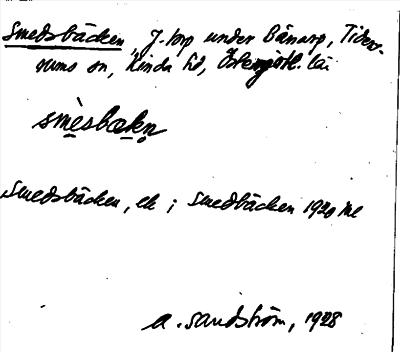 Smedsbäcken, J.-torp under Bänarp, Tiders-
rums sn, Kinda hd, Östergötl. län
smèsbækn
Smedsbäcken, ek ; Smedbäcken 1920
A. Sandström, 1928